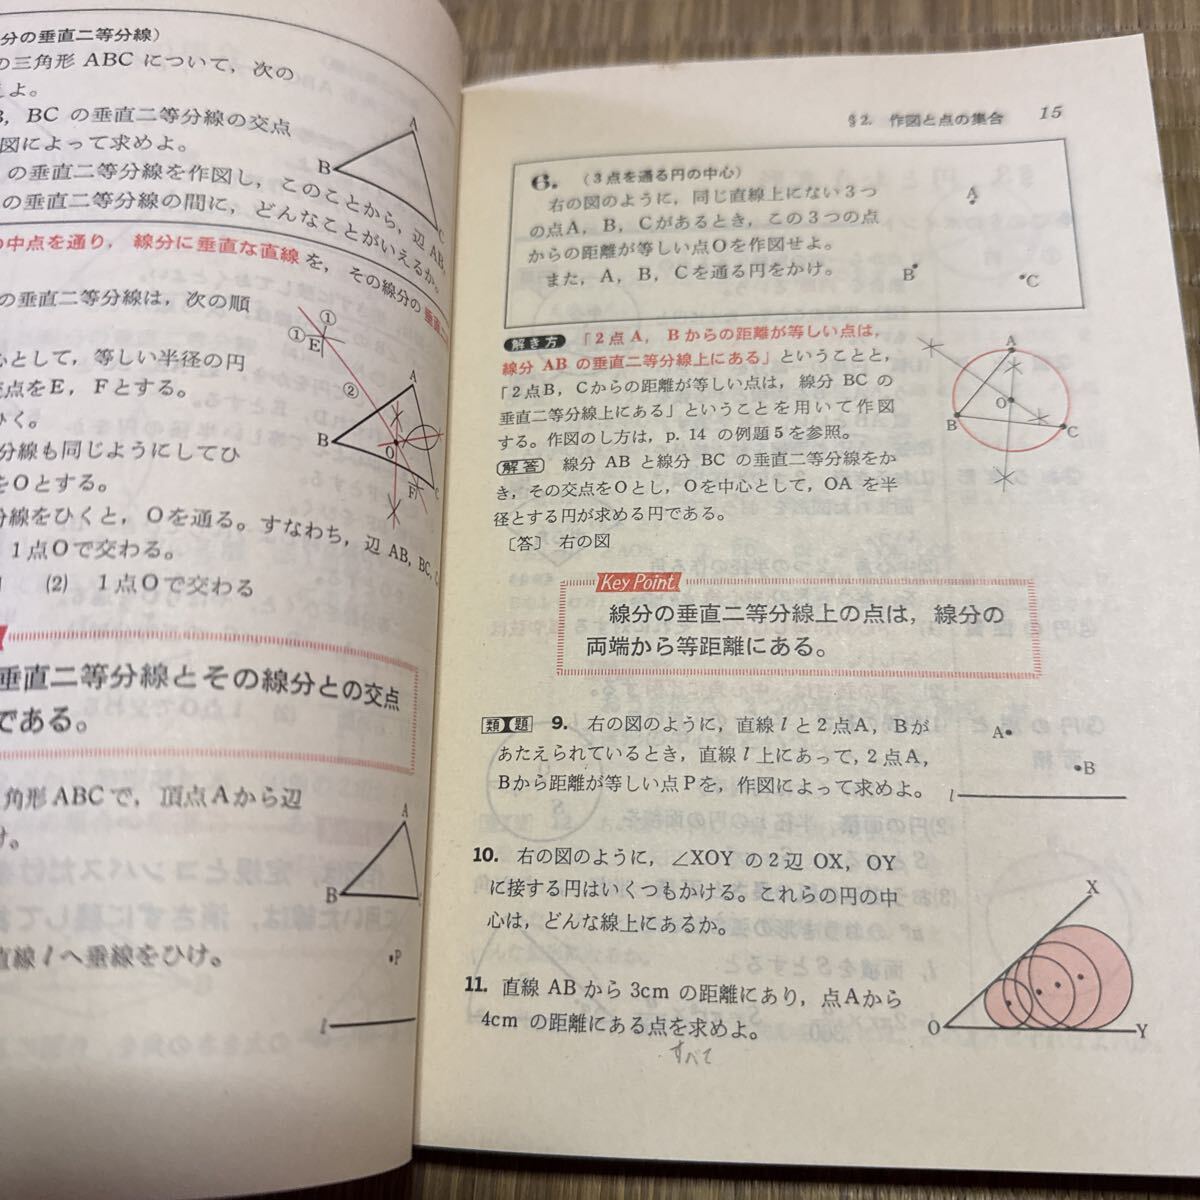 分の垂直二等分線)
の三角形 ABC について, 次の
えよ。
B, BC の垂直二等分線の交点
図によって求めよ。
の垂直二等分線を作図し, このことから, 辺 AB,
の垂直二等分線の間に, どんなことがいえるか。
A
B
C
の中点を通り, 線分に垂直な直線を, その線分の垂直
の垂直二等分線は, 次の順
心として, 等しい半径の円
交点をE, Fとする。
ひく。
分線も同じようにしてひ
をOとする。
分線をひくと, Oを通る。すなわち, 辺 AB, BC, C
1点Oで交わる。
(2) 1点Oで交わる
①
①
E
②
A
B
O
F
C
垂直二等分線とその線分との交点
である。
角形ABCで, 頂点Aから辺
け。
A
B
直線 l へ垂線をひけ。
P
l
§2. 作図と点の集合 15
6. (3点を通る円の中心)
右の図のように, 同じ直線上にない3つ
の点A, B, Cがあるとき, この3つの点
からの距離が等しい点Oを作図せよ。
また, A, B, Cを通る円をかけ。
A
B
C
解き方 「2点A, Bからの距離が等しい点は,
線分 AB の垂直二等分線上にある」ということと,
「2点B, Cからの距離が等しい点は, 線分 BC の
垂直二等分線上にある」ということを用いて作図
する。作図のし方は, p. 14 の例題5を参照。
解答 線分 AB と線分 BC の垂直二等分線をか
き, その交点をOとし, Oを中心として, OA を半
径とする円が求める円である。
〔答〕 右の図
A
O
B
C
Key Point
線分の垂直二等分線上の点は, 線分の
両端から等距離にある。
類題 9. 右の図のように, 直線 l と2点A, Bが
あたえられているとき, 直線 l 上にあって, 2点A,
Bから距離が等しい点Pを, 作図によって求めよ。
A
B
l
10. 右の図のように, ∠XOY の2辺 OX, OY
に接する円はいくつもかける。これらの円の中
心は, どんな線上にあるか。
X
O
Y
11. 直線 AB から 3cm の距離にあり, 点Aから
4cm の距離にある点を求めよ。
すべて